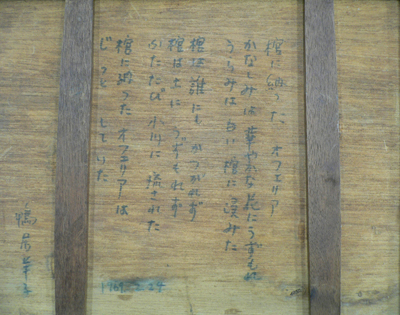 棺に納った オフェリア
かなしみは 華やかな 花にうずもれ
うらみは 白い 棺に 沈みた
棺は 誰にも かつがれず
棺は土に うずもれず
ふたたび 小川に 流された
棺に納った オフェリアは
じっと していた
1969. 2. 24